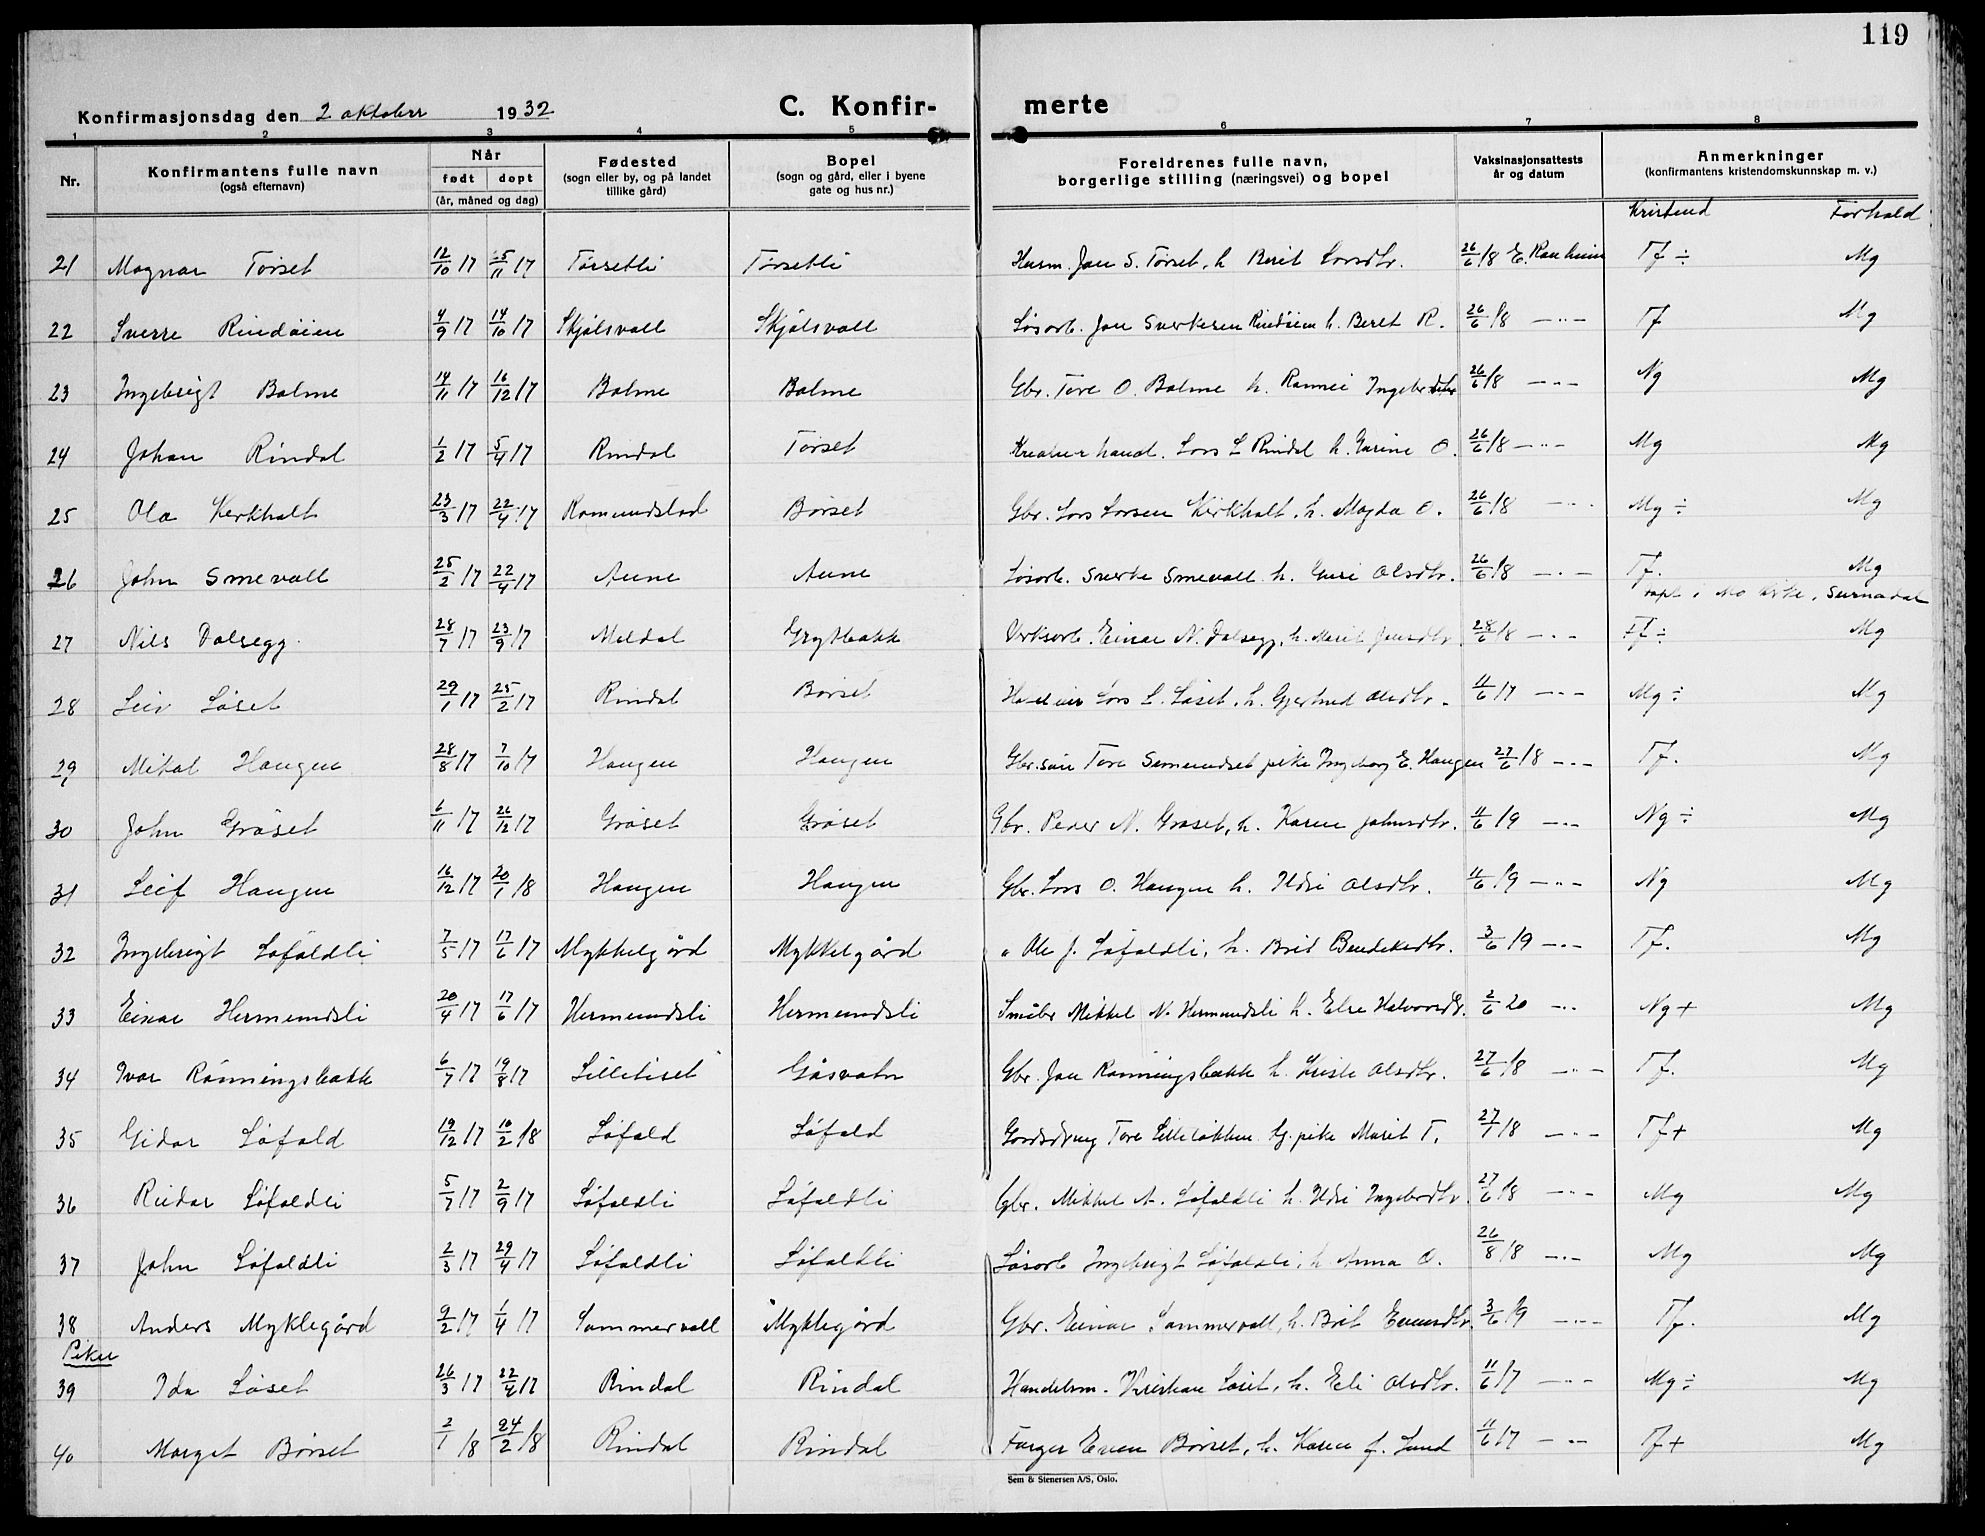 119
Konfirmasjonsdag den 2 oktober 1932
C. Konfir- merte
1 2 3 4 5 6 7 8
Nr.
Konfirmantens fulle navn
(også efternavn)
Når
født døpt
(år, måned og dag)
Fødested
(sogn eller by, og på landet
tillike gård)
Bopel
(sogn og gård, eller i byene
gate og hus nr.)
Foreldrenes fulle navn,
borgerlige stilling (næringsvei) og bopel
Vaksinasjonsattests
år og datum
Anmerkninger
(konfirmantens kristendomskunnskap m. v.)
Kristend Forhold
21 Magnar Tørset 12/10 17 25/11 17 Tørsetli Tørsetli Husm. Jon S. Tørset, h. Berit Larsdtr. 26/6 18 E. Ranheim Tf ÷ Mg
22 Sverre Rindøien 4/9 17 14/10 17 Skjølsvoll Skjølsvoll Løsarb. Jon Sverkesen Rindøien h. Beret R. 26/6 18 — " — Tf Mg
23 Ingebrigt Bolme 14/11 17 16/12 17 Bolme Bolme Gbr. Tore O. Bolme h. Rannei 26/6 18 — " — Ng Mg
24 Johan Rindal 1/2 17 5/4 17 Rindal Tørset Lars L Rindal h. O. 26/6 18 — " — Mg Mg
25 Ola Kirkholt 23/3 17 22/4 17 Romundstad Børset Gbr. Lars Larsen Kirkholt, h. Magda O. 26/6 18 — " — Mg ÷ Mg
26 John Smevoll 25/2 17 22/4 17 Aune Aune Løsarb. Sverke Smevoll h. Guri Olsdtr. 26/6 18 — " — Tf. Mg
døpt i Mo kirke, Surnadal
27 Nils Dalsegg. 28/7 17 23/9 17 Meldal Grytbakk Verksarb. Einar N. Dalsegg, h. Marit Jonsdtr. 28/6 18 — " — Tf ÷ Mg
28 Leiv Løset 29/1 17 25/2 17 Rindal Børset Lars L. Løset, h. Gjertrud Olsdtr. 11/6 17 — " — Mg ÷ Mg
29 Mikal Haugen 28/8 17 7/10 17 Haugen Haugen Gbr.søn Tore pike Ingeborg E. Haugen 27/6 18 — " — Tf. Mg
30 John Grøset 6/11 17 26/12 17 Grøset Grøset Gbr. Peder N. Grøset, h. Karen Johnsdtr. 11/6 19 — " — Ng ÷ Mg
31 Leif Haugen 16/12 17 20/1 18 Haugen Haugen Gbr. Lars O. Haugen h. Ildri Olsdtr. 11/6 19 — " — Ng Mg
32 Ingebrigt Løfaldli 7/5 17 17/6 17 Mykkelgård Mykkelgård " Ole J. Løfaldli, h. Brit 3/6 19 — " — Tf. Mg
33 Einar Hermundsli 20/4 17 17/6 17 Hermundsli Hermundsli Småbr Mikkel N. Hermundsli h. Elise Halvordtr. 2/6 20 — " Ng + Mg
34 Ivar Rønningsbakk 6/7 17 19/8 17 Lilletiset Gåsvatn Gbr. Jon Rønningsbakk h. Kristi Olsdtr. 27/6 18 — " — Tf. Mg
35 Gidar Løfald 19/12 17 10/2 18 Løfald Løfald Gårdsdreng Tore Lilleløkken G. pike Marit T. 27/1 18 — " — Tf + Mg
36 Reidar Løfaldli 5/7 17 2/9 17 Løfaldli Løfaldli Gbr. Mikkel A. Løfaldli h. Ildri 27/6 18 — " — Mg Mg
37 John Løfaldli 2/3 17 29/4 17 Løfaldli Løfaldli Løsarb Ingebrigt Løfaldli, h Anna O. 26/8 18 — " — Mg Mg
38 Anders Myklegård 9/2 17 1/4 17 Sommervoll Myklegård Gbr. Einar Sommervoll, h. Brit Evensdtr. 3/6 19 — " — Tf. Mg
Piker
39 Ida Løset 26/3 17 22/4 17 Rindal Rindal Handelsm. Kristian Løset, h. Eli Olsdtr. 11/6 17 — " — Mg ÷ Mg
40 Marget Børset 2/1 18 24/2 18 Rindal Rindal Farger Even Børset, h. Karen f. Lund 11/6 17 — " — Tf + Mg
Sem & Stenersen A/S, Oslo.